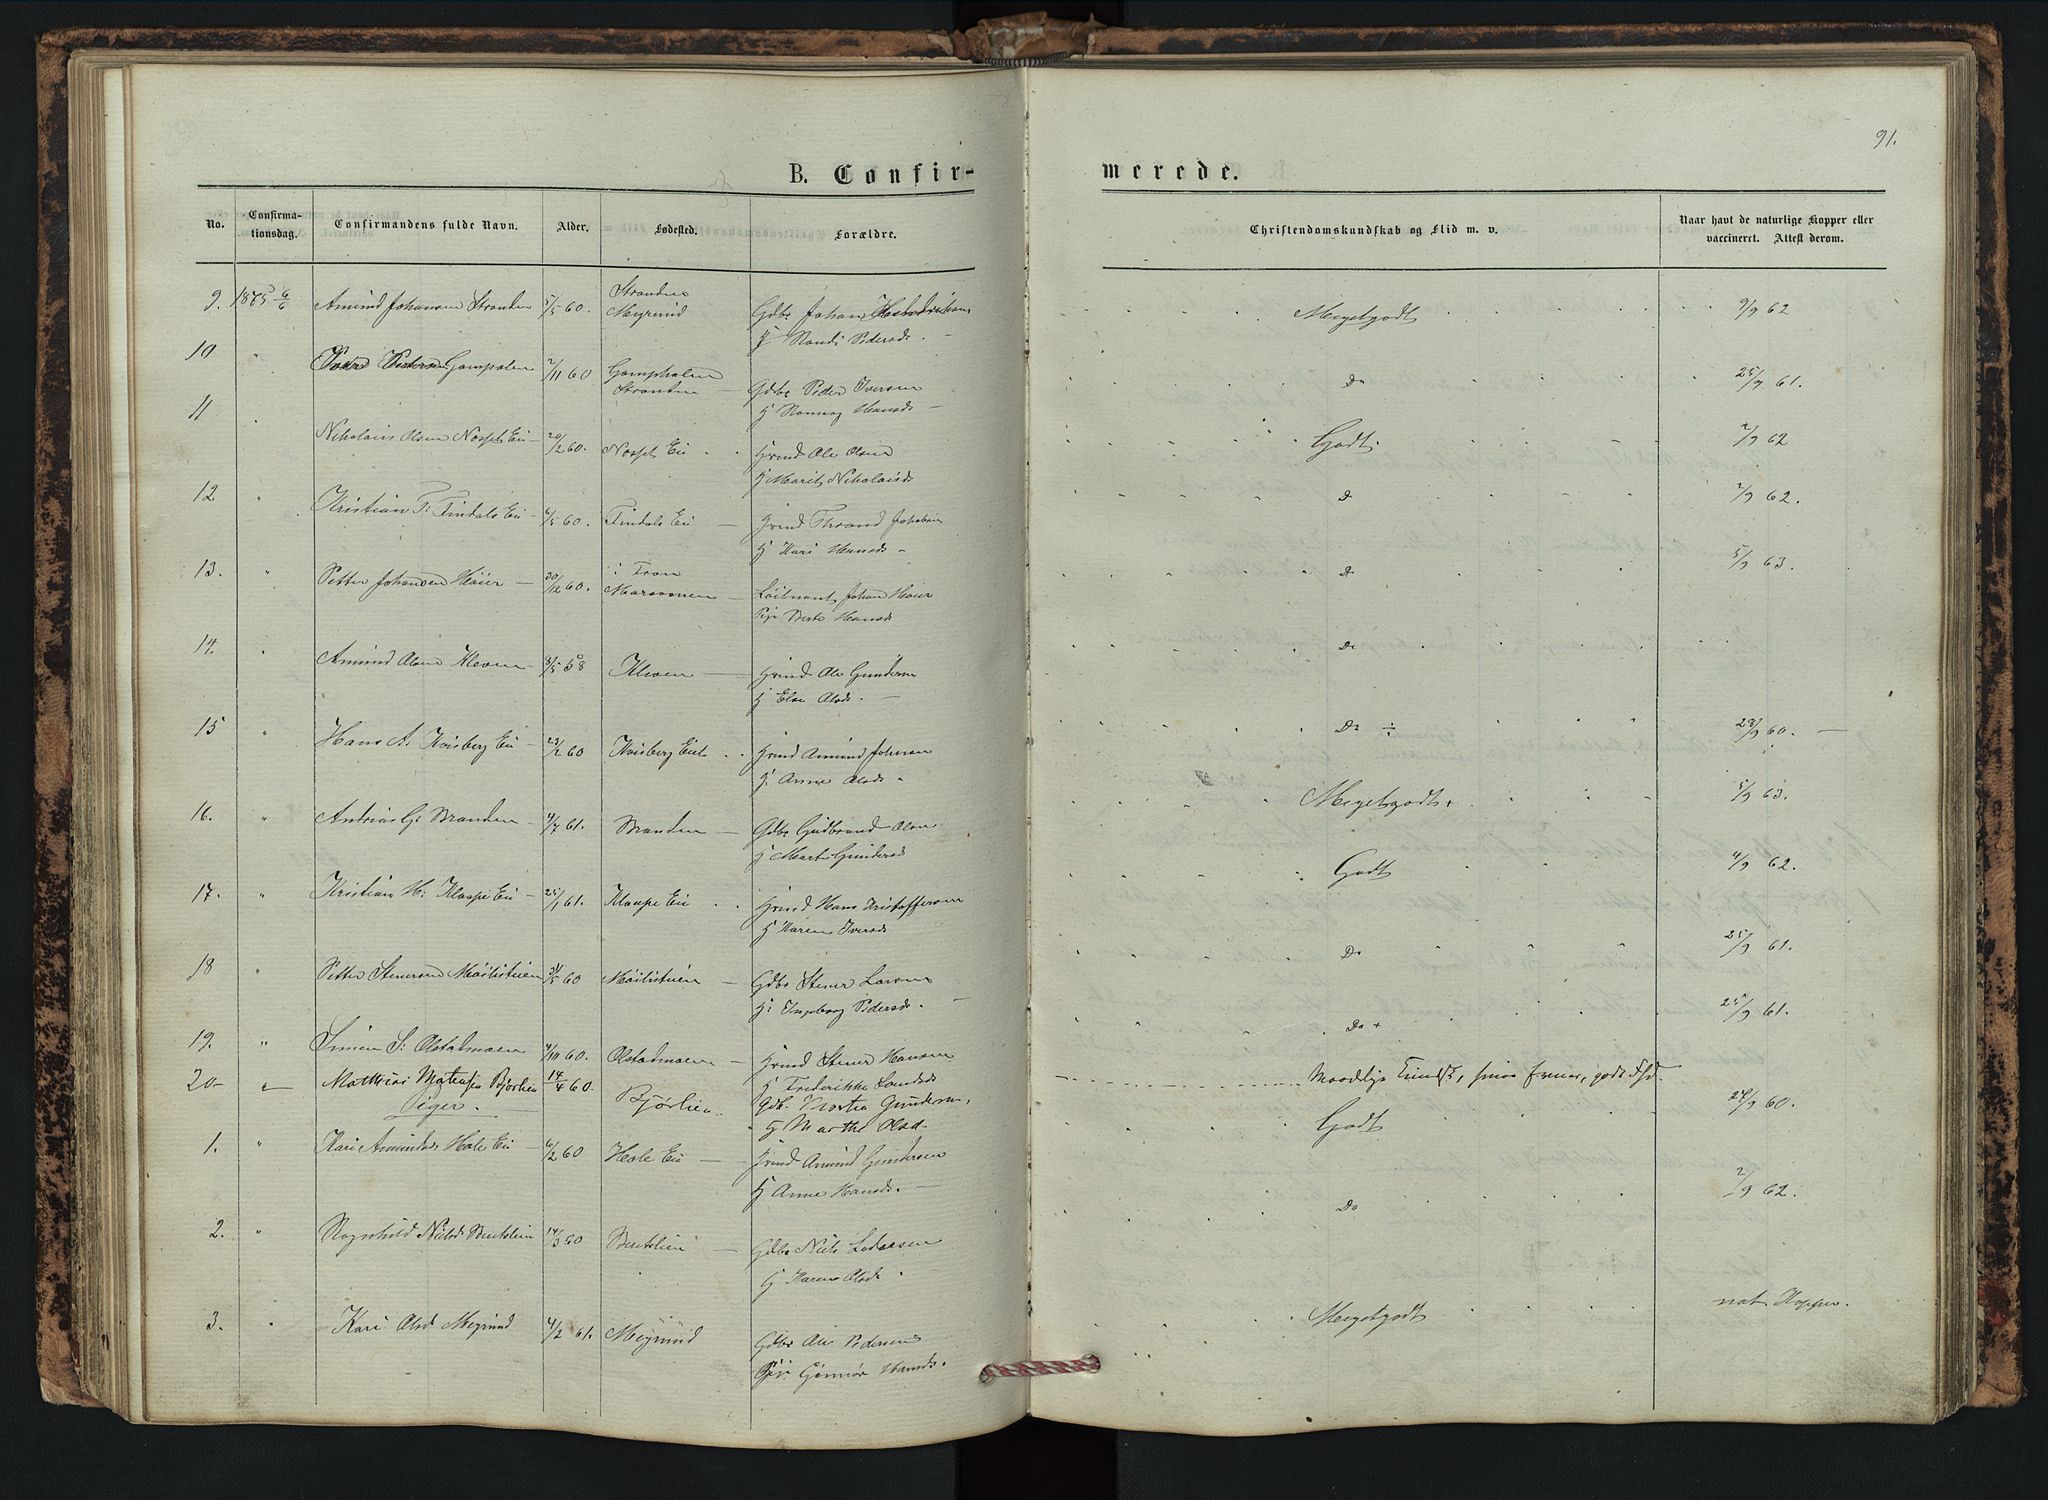 91.
B. Confir-
merede.
No.
Confirma-
tionsdag.
Confirmandens fulde Navn.
Alder.
Fødested.
Forældre.
Christendomskundskab og Flid m. v.
Naar havt de naturlige Kopper eller
vaccineret. Attest derom.
9. 1875 6/6 Amund Johansen Stranden 5/5 60. Stranden
Megrund Gdbr Johan
H Randi Pedersd. Megetgodt 9/9 62
10 " Gampalen 2/11 60 Gamphalen
Stranden Gdbr Peder Iversen
H Hansd. Do 25/9 61.
11 Nikolais Olsen Nosp. Ei 20/2 60. Nosp. Ei Hvmd Ole Olsen
H Marit Nikolaisd. Godt 7/9 62
12 " Kristian T: Tindals Ei 6/5 60. Tindals Ei Hvmd Thrond Johnsen
H Kari Hansd. D 7/9 62.
13. " Petter Johansen Høier 30/12 60. i Fron
Løitnant Johan Høier
Pige Berte Hansd. Do 5/9 63.
14. Amund Olsen Kleven 8/5 58 Kleven Hvmd Ole Gundersen
H Else Olsd. Do
15 " Hans A. Kvisberg Ei 23/2 60 Kvisberg Eiet Hvmd Amund Johnsen
H. Anne Olsd. Do ÷ 28/9 60.
16. " Andrias G: Branden 4/7 61. Branden Gdbr Gudbrand Olsen
H Marte Gundersd Megetgodt + 5/9 63.
17. " Kristian H: Klaape Ei 25/1 61. Klaape Ei Hvmd Hans Kristoffersen
H Karen Iversd. Godt 4/9 62.
18 " Petter Stenersen Møilistuen 31/5 60 Møilistuen Gdbr Stener Larsen
H: Ingeborg Pedersd. Do 25/9 61.
19. " Simen S: Olstadmoen 4/10 60. Olstadmoen Hvmd Stener Hansen
H Frederikke Do + 25/9 61.
20 Mathias Matensen Bjørlien 14/4 60. Bjørlien Gdb. Gundersen,
H Marthe Olsd
Piger.
1. " Kari Amundsd. Hole Ei 6/2 60 Hole Ei Hvmd Amund Gundersen
H Anne Hansd. Godt 24/9 60.
2. " Ragnhild Nielsd Bentslien 14/3 60 Bentslien Gdbr Niels
H Karen Olsd. Do 2/9 62.
3. Kari Olsd Megrund 4/2 61. Megrund Gdbr Ole Pedersen
Hansd. Megetgodt nat Kopper.